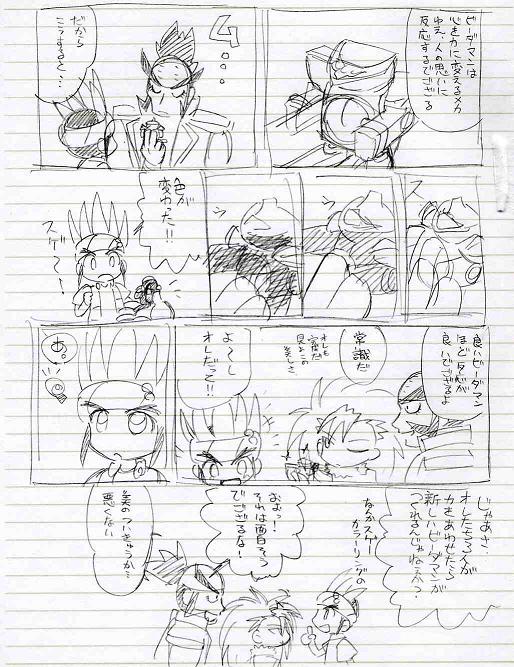 ビーダマンは
心を力に変えるメカ
ゆえ、人の思いに
反応するでござる
ム。。。
だから
こうすると、…
ス
ウ
ウ
色が
変わった!!
スゲ〜〜!
良いビーダマン
ほど反応が
良いでござるよ
常識だ
オレも
常にこの
美しさ
よ〜し
オレだって!!
あ。
じゃあさ、
オレたち3人が
力をあわせたら
新しいビーダマンが
つくれるんじゃねえか?
なんかスゲー
カラーリングの
おおっ!
それは面白そう
でござるな!
美のついきゅうか…
悪くない